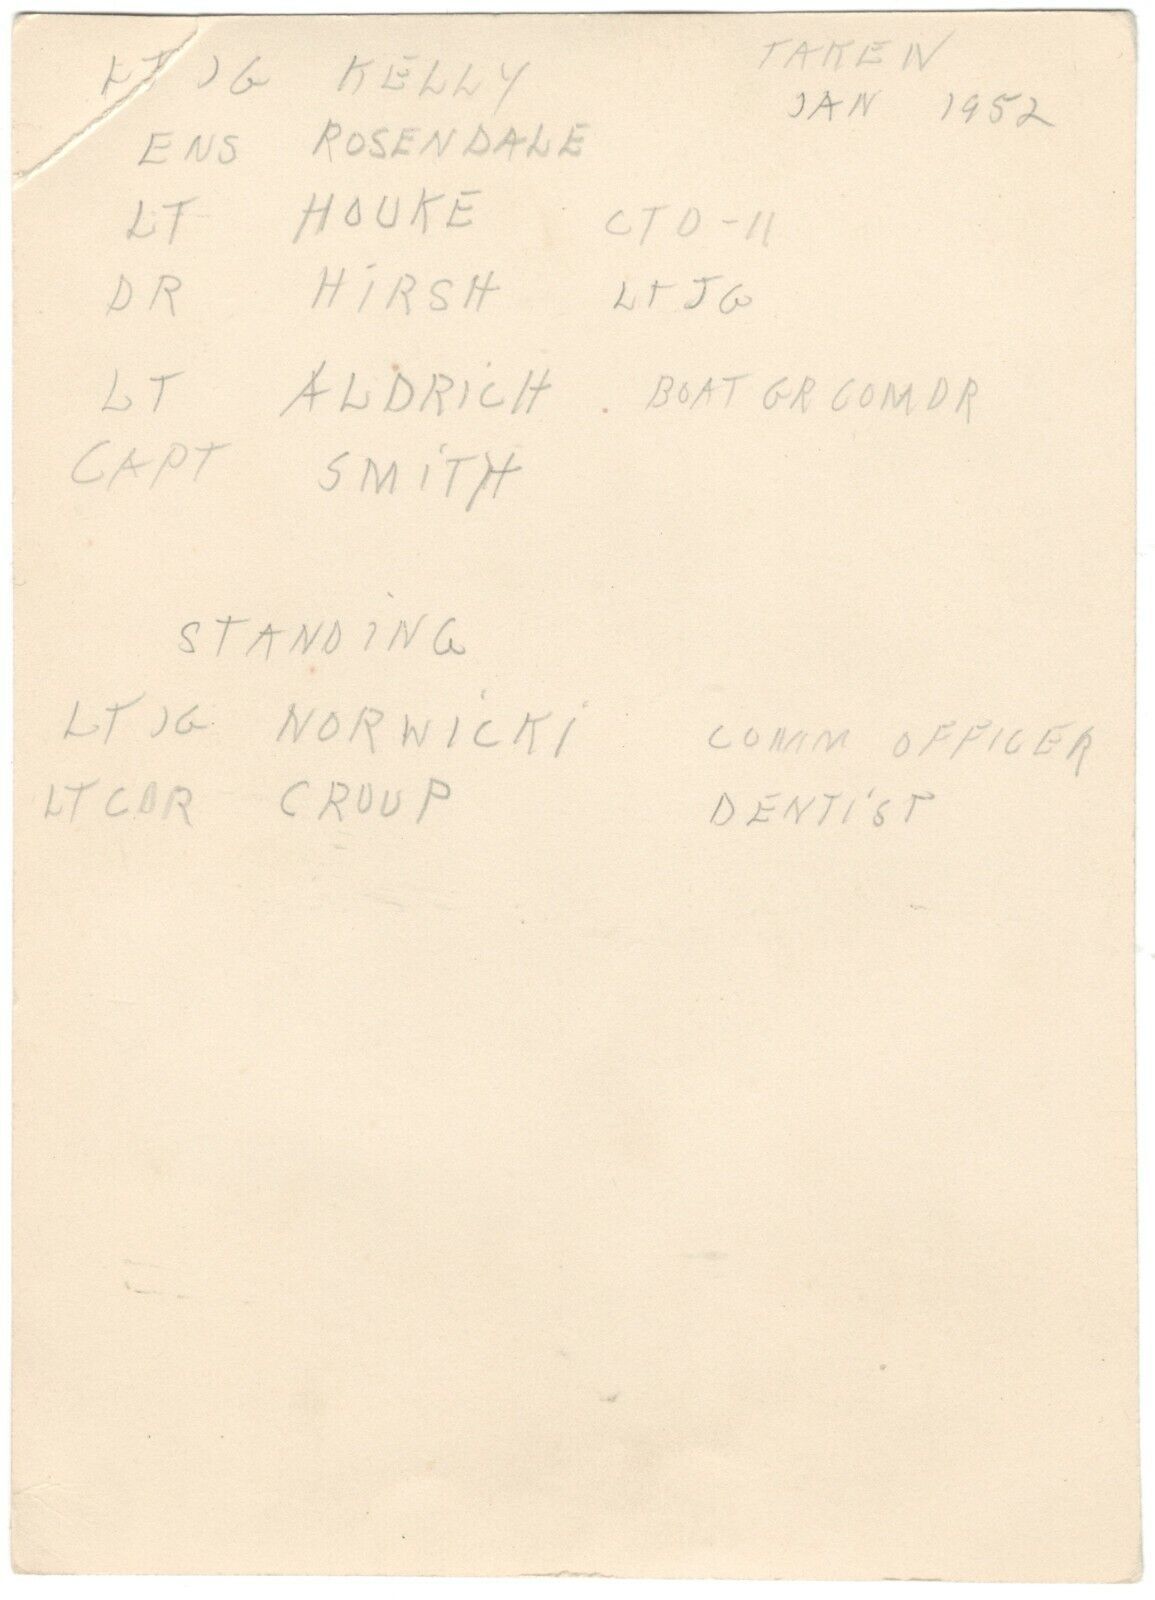 LT JG KELLY TAKEN
JAN 1952
ENS ROSENDALE
LT HOUKE CTO-11
DR HiRSH LT JG
LT ALDRiCH BOAT GR COMDR
CAPT SMiTH
STANDiNG
LT JG NORWiCKi COMM OFFICER
LT CDR CROUP DENTiST